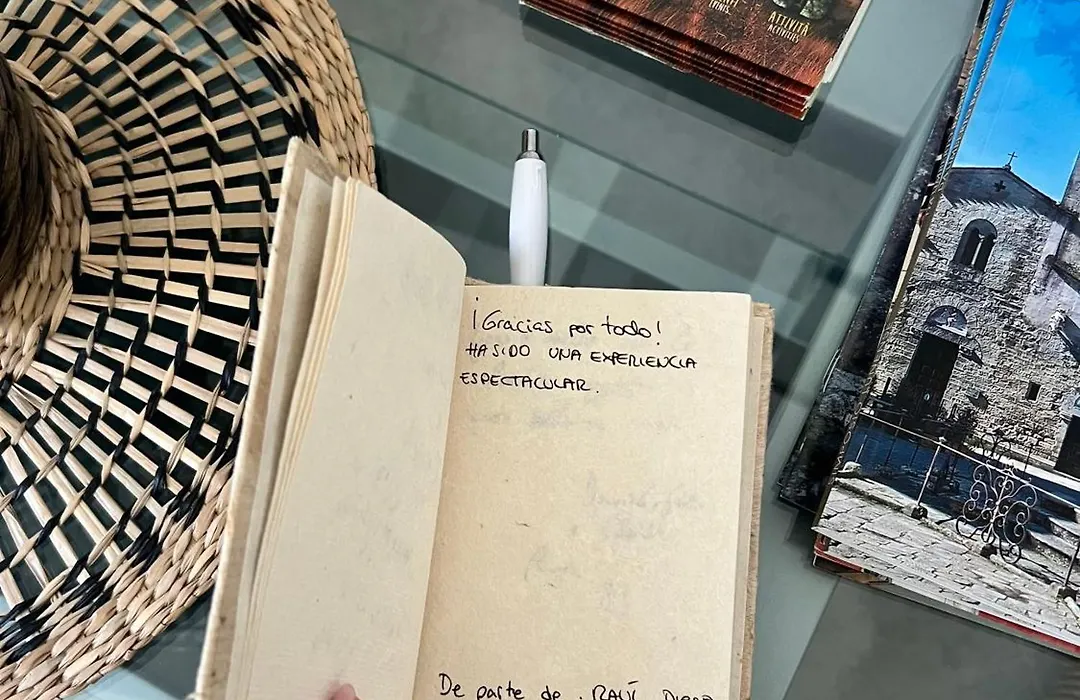 ATTIVITÀ
ACTIVITIES
¡Gracias por todo!
HA SIDO UNA EXPERIENCIA
ESPECTACULAR.
De parte de : RAÚL